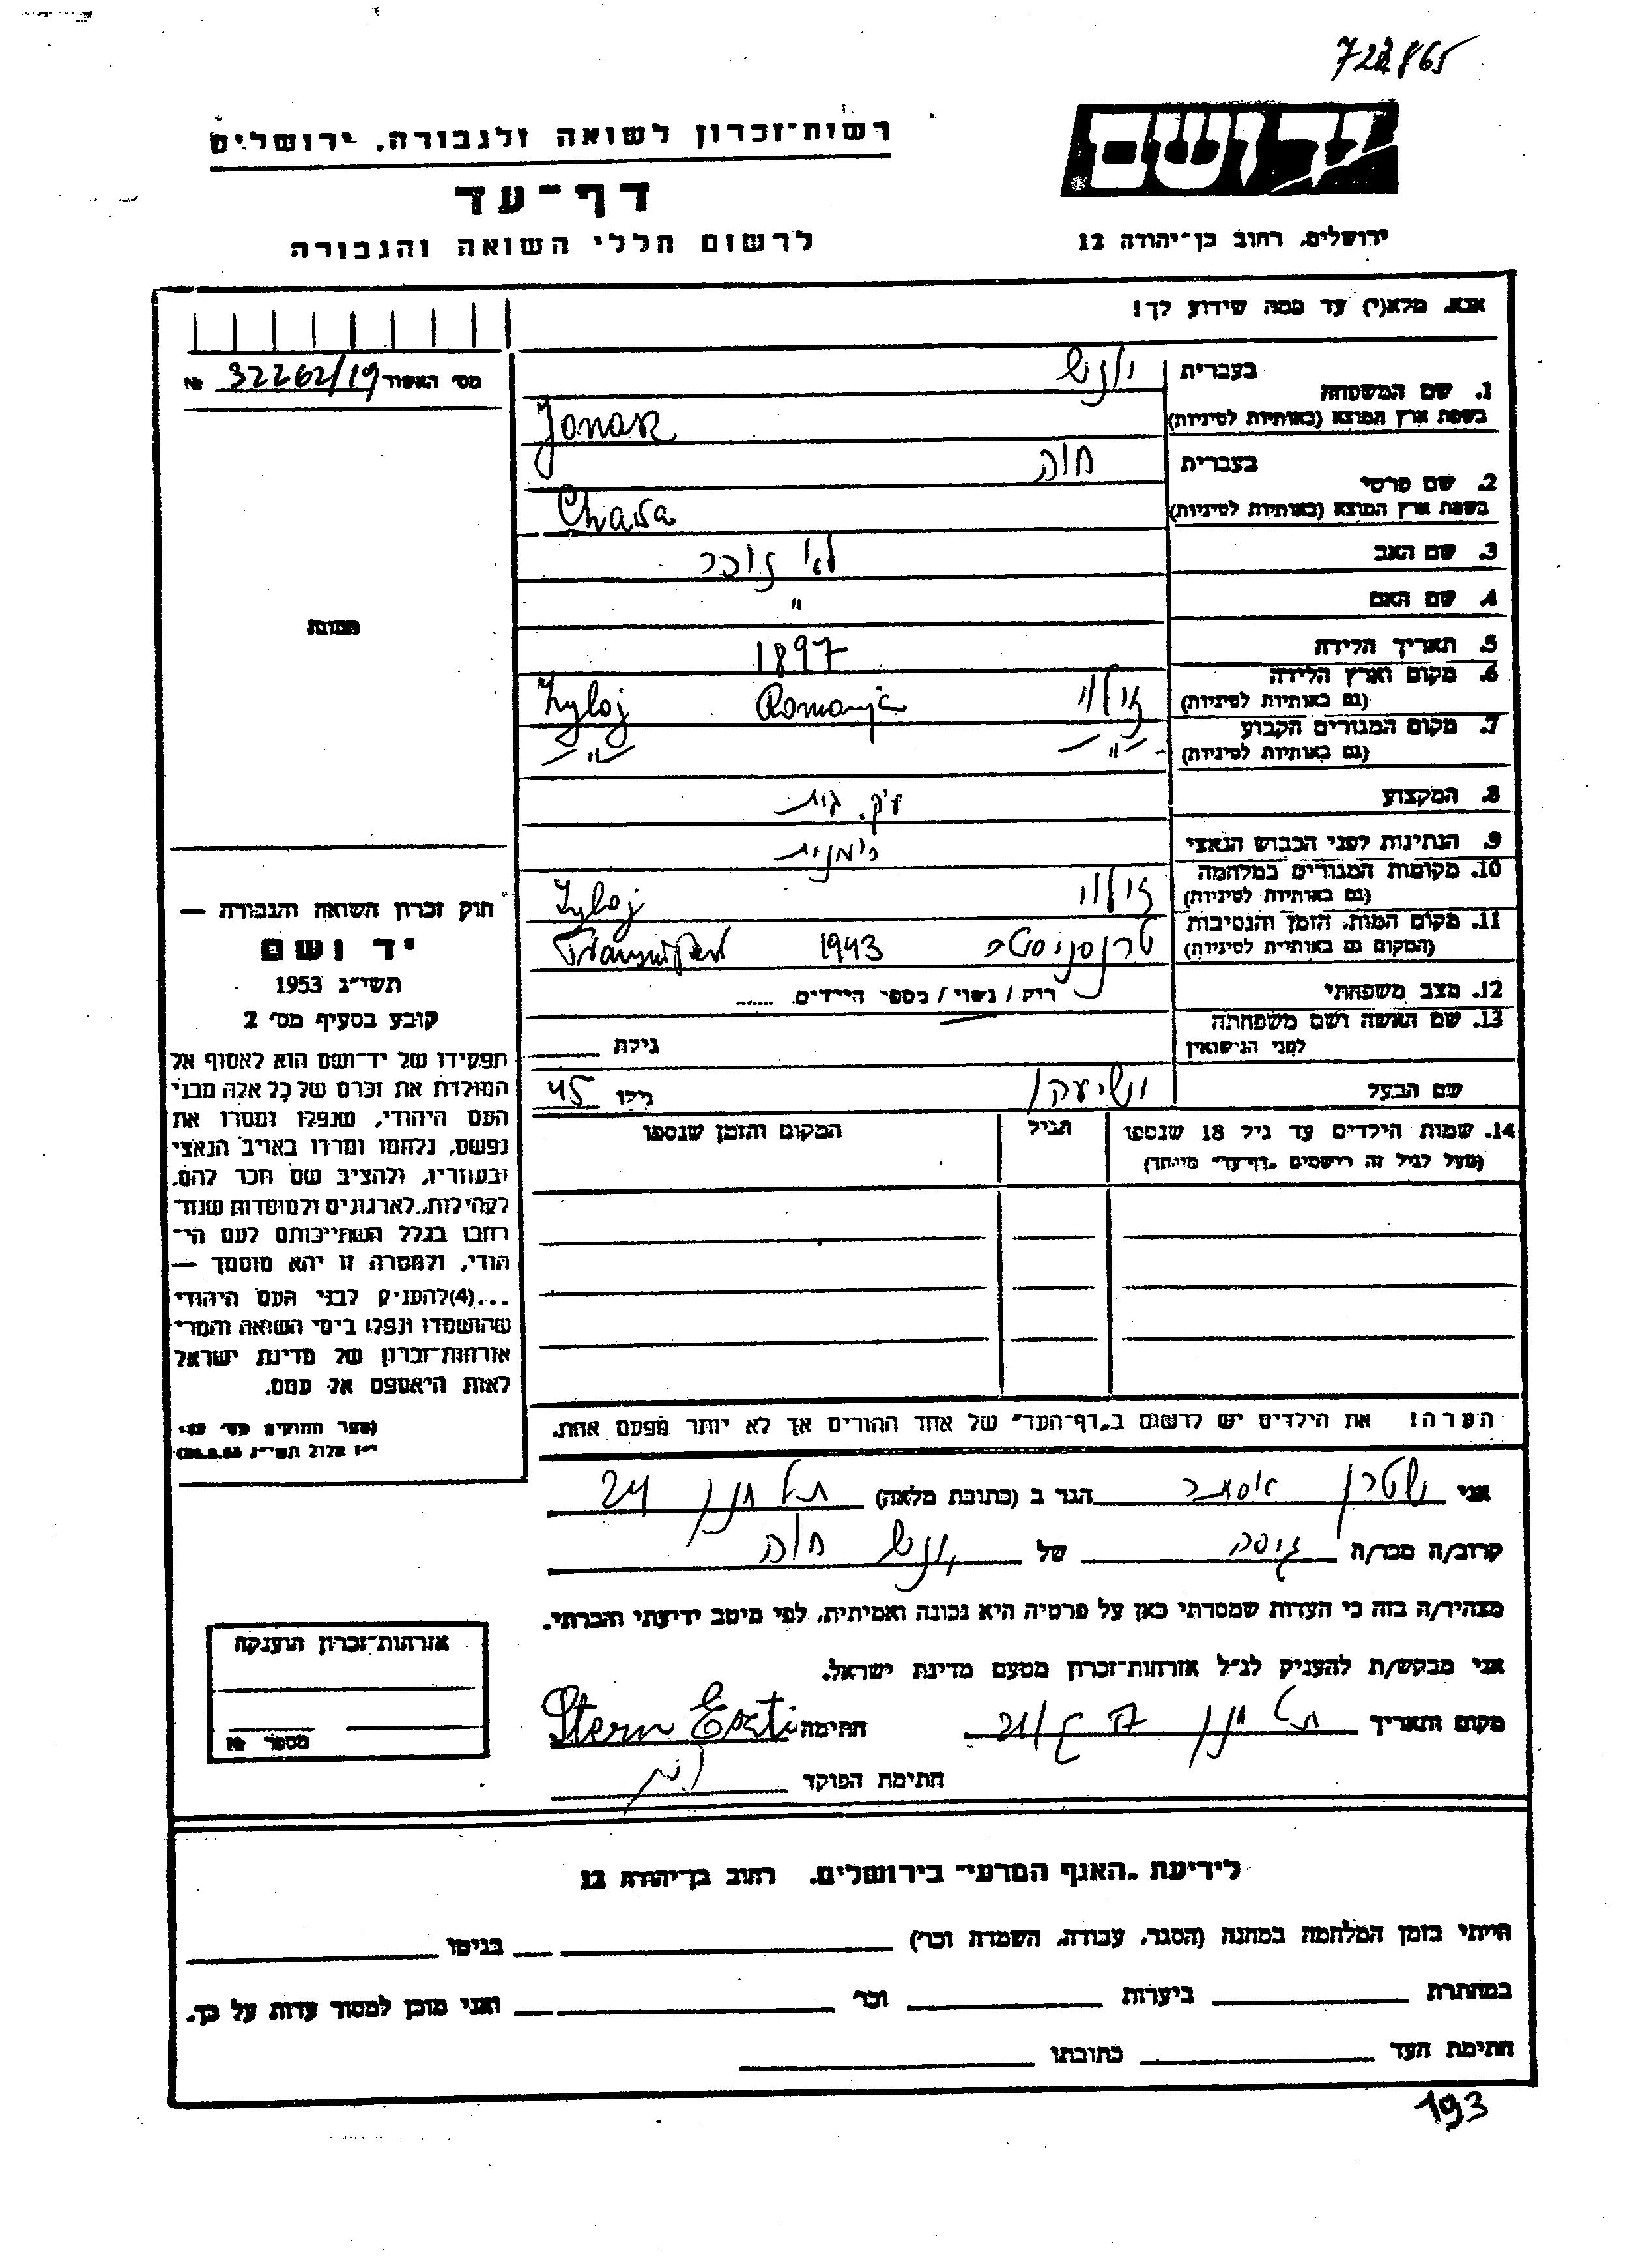 722865
רשות-זכרון לשואה ולגבורה, ירושלים
יד ושם
דף-עד
לרשום חללי השואה והגבורה
ירושלים, רחוב בן-יהודה 12
אנא, מלא(י) עד כמה שידוע לך!
מס' האשור № 32262/19
1. שם המשפחה
בעברית יונש
בשפת ארץ המוצא (באותיות לטיניות) Jonas
2. שם פרטי
בעברית חוה
בשפת ארץ המוצא (באותיות לטיניות) Chava
3. שם האב לא זוכר
4. שם האם "
5. תאריך הלידה 1897
6. מקום וארץ הלידה
(גם באותיות לטיניות) זילוי Romanja Zyloj
7. מקום המגורים הקבוע
(גם באותיות לטיניות) -"- -"-
8. המקצוע עק. בית
9. הנתינות לפני הכבוש הנאצי רומנית
10. מקומות המגורים במלחמה
(גם באותיות לטיניות) זילוי Zyloj
11. מקום המות, הזמן והנסיבות
(המקום גם באותיות לטיניות) טרנסניסטר 1943
12. מצב משפחתי רווק / נשוי / מספר הילדים
13. שם האשה ושם משפחתה
לפני הנישואין גילה
שם הבעל גילו 45
14. שמות הילדים עד גיל 18 שנספו
(מעל לגיל זה רושמים "דף-עד" מיוחד)
הגיל
המקום והזמן שנספו
הערה! את הילדים יש לרשום ב"דף-העד" של אחד ההורים אך לא יותר מפעם אחת.
תמונה
חוק זכרון השואה והגבורה —
יד ושם
תשי"ג 1953
קובע בסעיף מס' 2
תפקידו של יד-ושם הוא לאסוף אל
המולדת את זכרם של כל אלה מבני
העם היהודי, שנפלו ומסרו את
נפשם, נלחמו ומרדו באויב הנאצי
ובעוזריו, ולהציב שם וזכר להם,
לקהילות, לארגונים ולמוסדות שנח-
רבו בגלל השתייכותם לעם הי-
הודי, ולמטרה זו יהא מוסמך —
...(4) להעניק לבני העם היהודי
שהושמדו ונפלו בימי השואה והמרי
אזרחות-זכרון של מדינת ישראל
לאות היאספם אל עמם.
י"ז אלול תשי"ג
אני שטרן אסתר הגר ב (כתובת מלאה) תל חנן 24
קרוב/ה מכר/ה גיסה של יונש חוה
מצהיר/ה בזה כי העדות שמסרתי כאן על פרטיה היא נכונה ואמיתית, לפי מיטב ידיעתי והכרתי.
אני מבקש/ת להעניק לנ"ל אזרחות-זכרון מטעם מדינת ישראל.
מקום ותאריך תל חנן חתימה Stern Eszti
חתימת הפוקד
אזרחות-זכרון הוענקה
מספר №
לידיעת "האגף המדעי" בירושלים. רחוב בן-יהודה 12
הייתי בזמן המלחמה במחנה (הסגר, עבודה, השמדה וכר') בגיטו
במחתרת ביערות וכר' ואני מוכן למסור עדות על כך.
חתימת העד כתובתו
193